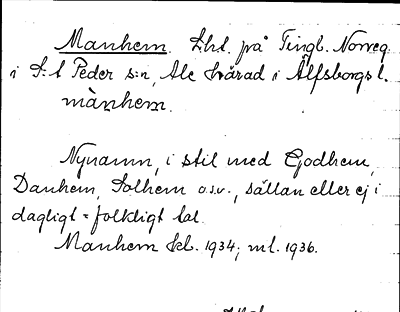 Manhem. Lht. på Tingb. Norveg
i S:t Peder s:n, Ale härad i Älfsborgs l.
mànhem.
Nynamn, i stil med Godhem,
Danhem, Solhem o.s.v., sällan eller ej i
dagligt-folkligt tal.
Manhem kb. 1934; ml. 1936.